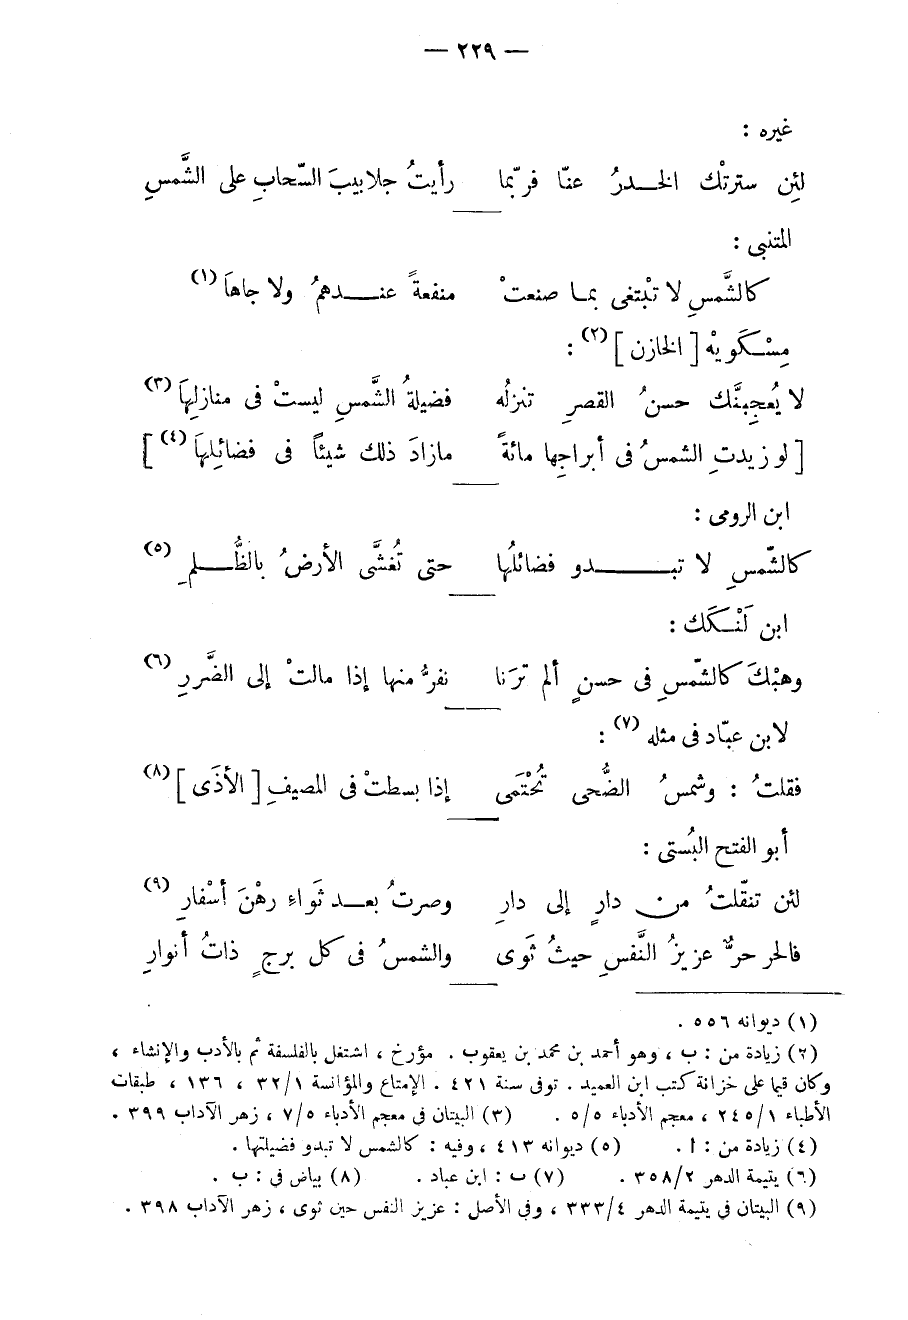 — ٢٢٩ —
غيره :
لئِن سترتْك الخــدرُ عنّا فربّما رأيتُ جلابيبَ السّحابِ على الشَّمسِ
المتنبى :
كالشَّمسِ لا تبْتغى بما صنعتْ منفعةً عنــدهمُ ولا جاهَا (١)
مِسْكَويْه [ الخازن ] (٢) :
لا يُعجِبنَّك حسنُ القصرِ تنزلُه فضيلةُ الشَّمسِ ليستْ فى منازلِهَا (٣)
[ لو زيدتِ الشمسُ فى أبراجِها مائةً مازادَ ذلك شيئاً فى فضائلِهَا (٤) ]
ابن الرومى :
كالشّمسِ لا تبــدو فضائلُها حتى تُغشَّى الأرضُ بالظُّــلمِ (٥)
ابن لَنْكَك :
وهبْكَ كالشّمسِ فى حسنٍ ألم ترَنا نفرُّ منها إذا مالتْ إلى الضَّررِ (٦)
لابن عبّاد فى مثله (٧) :
فقلتُ : وشمسُ الضُّحى تُحْتَمى إذا بسطتْ فى المصيفِ [ الأذَى ] (٨)
أبو الفتح البُستى :
لئن تنقّلتُ من دارٍ إلى دارِ وصرتُ بعــد ثَواءِ رهْنَ أسْفارِ (٩)
فالحر حرٌّ عزيزُ النَّفسِ حيثُ ثَوى والشمسُ فى كل برجٍ ذاتُ أنوارِ
(١) ديوانه ٥٥٦ .
(٢) زيادة من : ب ، وهو أحمد بن محمد بن يعقوب . مؤرخ ، اشتغل بالفلسفة ثم بالأدب والإنشاء ،
وكان قيما على خزانة كتب ابن العميد . توفى سنة ٤٢١ . الإمتاع والمؤانسة ٣٢/١ ، ١٣٦ ، طبقات
الأطباء ٢٤٥/١ ، معجم الأدباء ٥/٥ . (٣) البيتان فى معجم الأدباء ٧/٥ ، زهر الآداب ٣٩٩ .
(٤) زيادة من : ا . (٥) ديوانه ٤١٣ ، وفيه : كالشمس لا تبدو فضيلتها .
(٦) يتيمة الدهر ٣٥٨/٢ . (٧) ب : ابن عباد . (٨) بياض فى : ب .
(٩) البيتان فى يتيمة الدهر ٣٣٣/٤ ، وفى الأصل : عزيز النفس حين ثوى ، زهر الآداب ٣٩٨ .